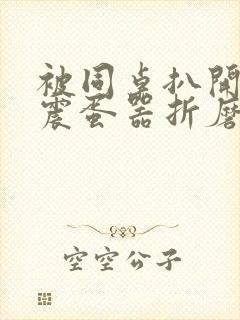 被同桌扒開
震蛋器折磨
空空公子